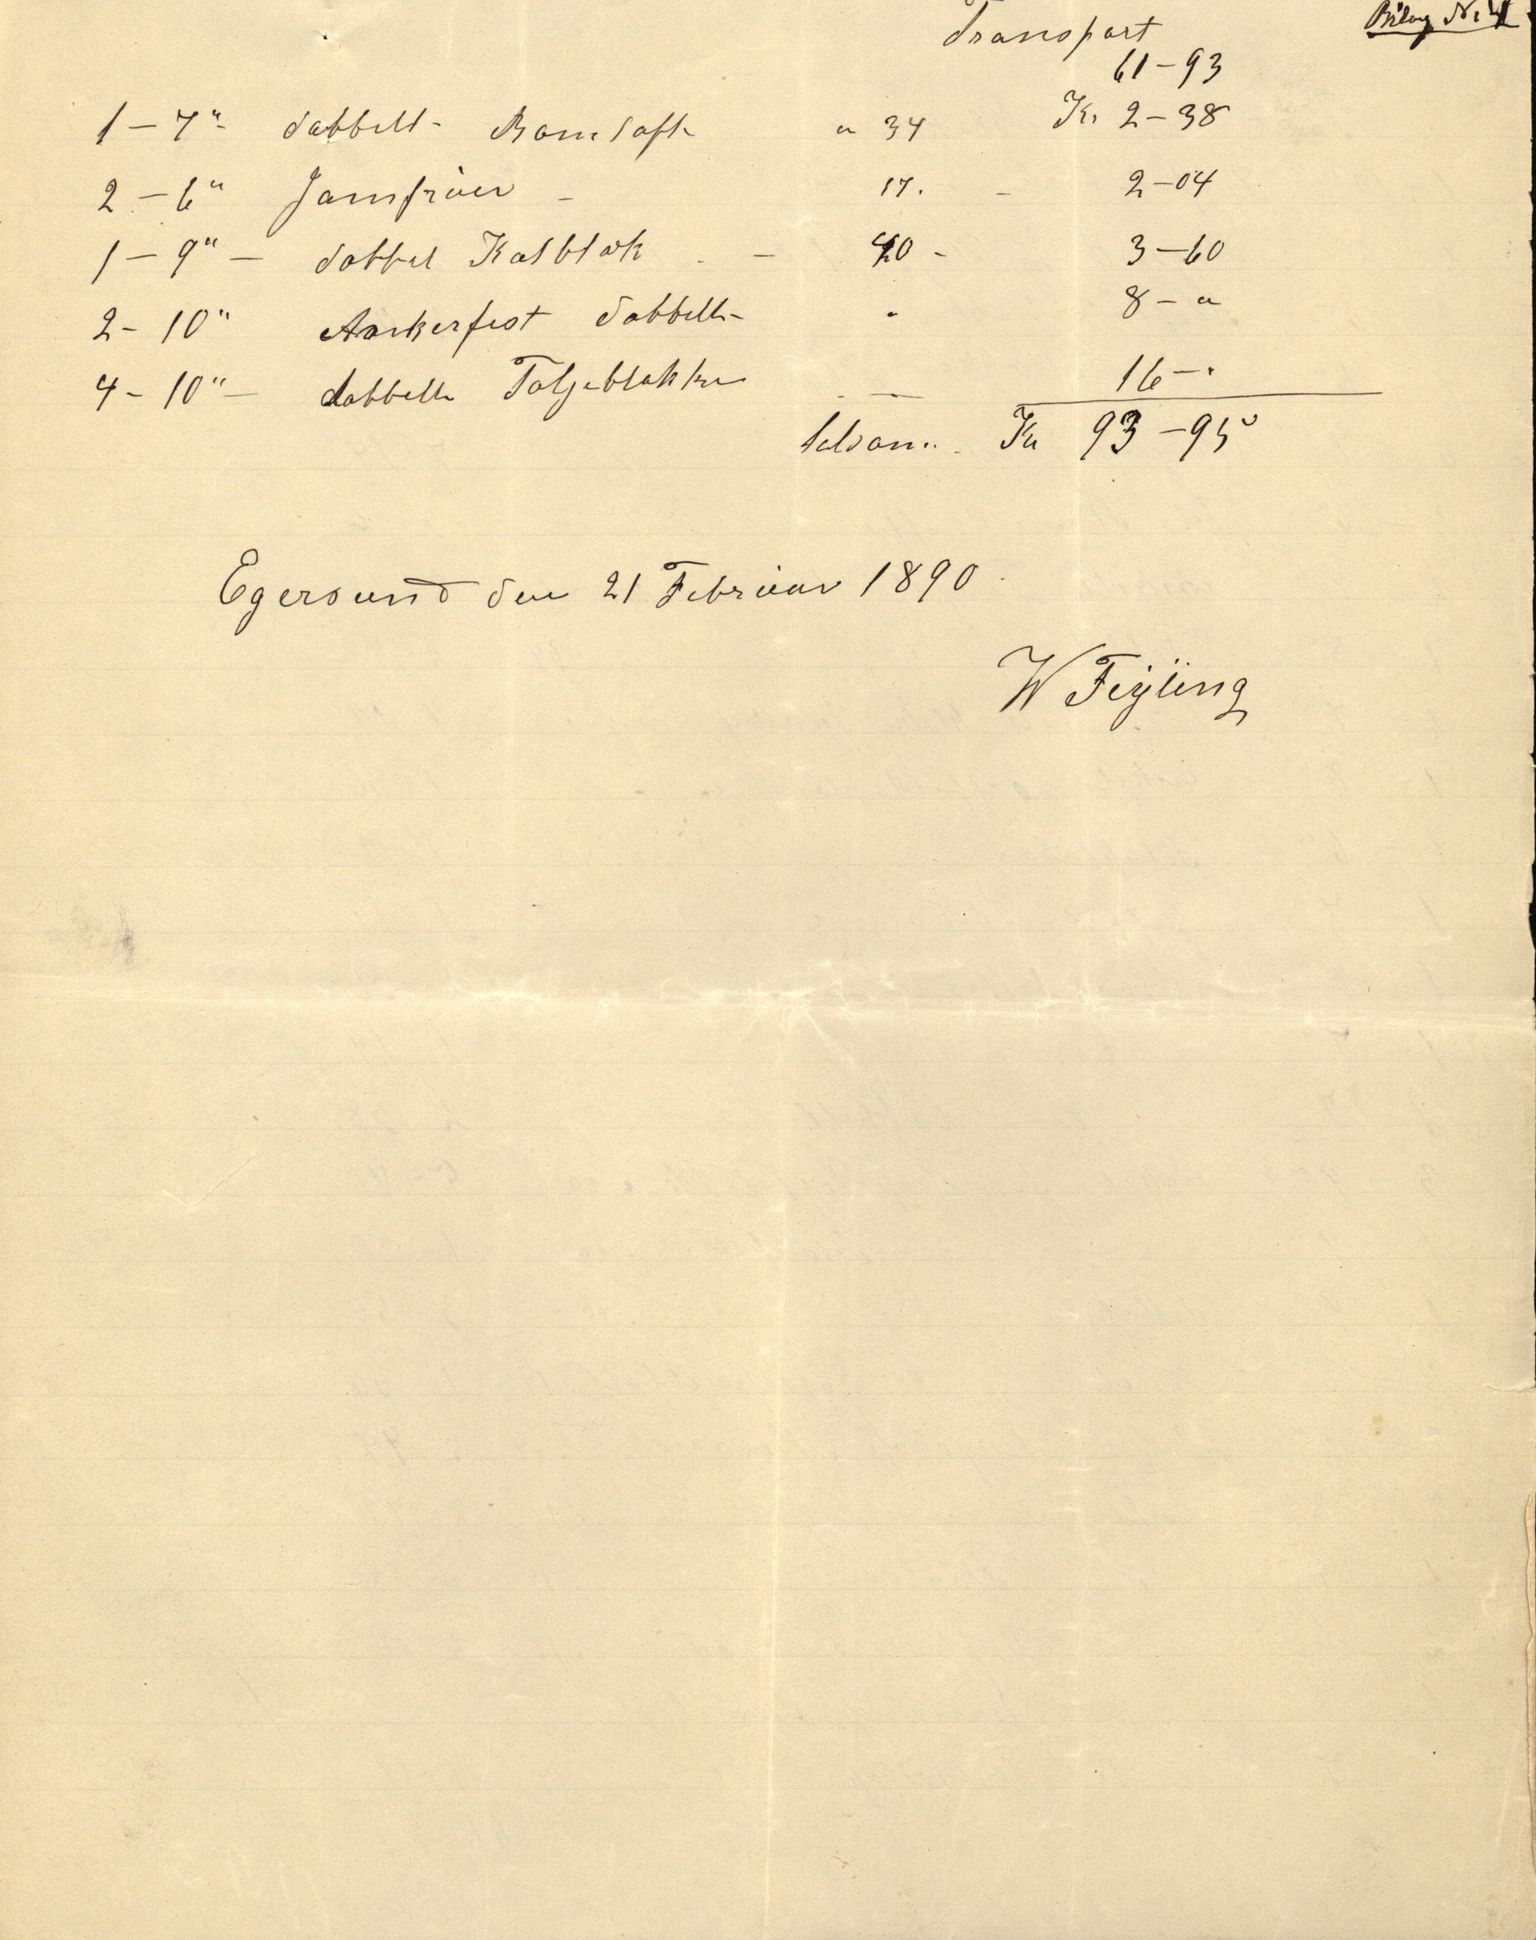 Bilag Nr 4
Transport
61-93
1 - 7" dobbelt Bomloft a 34 Kr 2-38
2 - 6" Jomfruer - 17. - 2-04
1 - 9" - dobbel Katblok - 40 - 3-60
2 - 10" Ankerfest dobbelt " 8 - "
4 - 10" - dobbelte Taljeblokke - 16 - "
Kr 93-95
Egersund den 21 Februar 1890
W Feyling